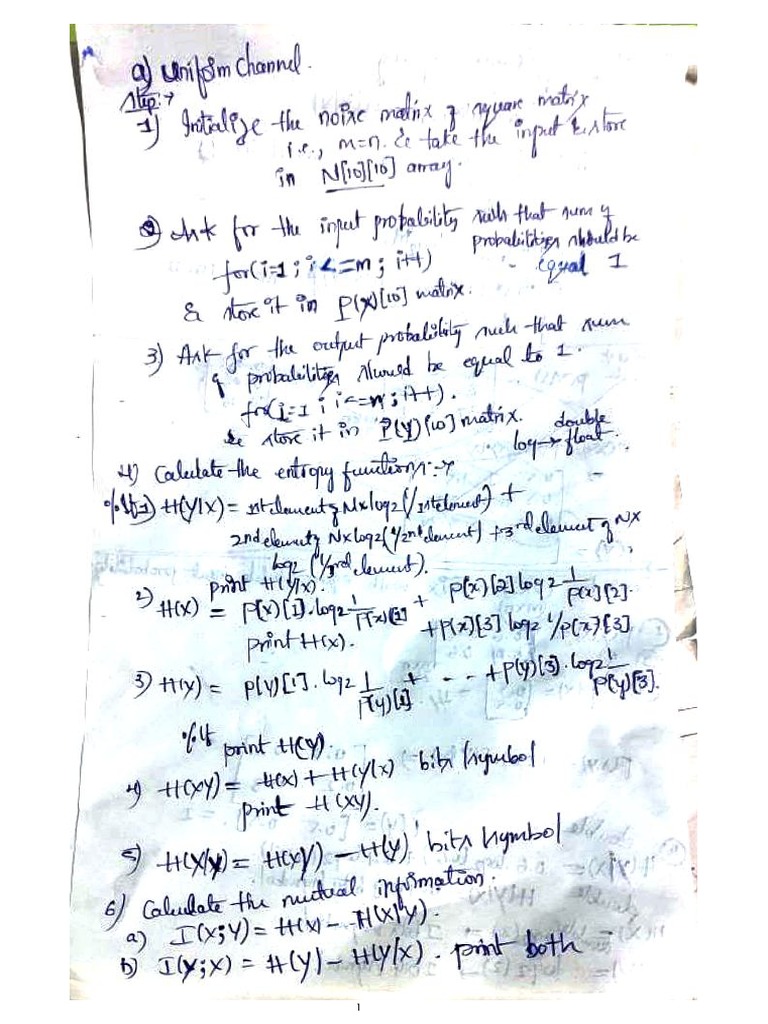 a) Uniform Channel.
Step:→
1) Initialize the noise matrix of square matrix
i.e., m=n. & take the input & store
in N[10][10] array.
2) Ask for the input probability such that sum of
probabilities should be
for(i=1; i<=m; i++) equal 1
& store it in P(X)[10] matrix.
3) Ask for the output probability such that sum
of probabilities should be equal to 1.
for(i=1; i<=n; i++).
& store it in P(Y)[10] matrix. double
log → float.
4) Calculate the entropy functions:→
%lf 1) H(Y/X) = 1st element of N x log2(1/1st element) +
2nd element of N x log2(1/2nd element) + 3rd element of N x
log2 (1/3rd element).
print H(Y/X).
2) H(X) = P(X)[1].log2 1/P(X)[1] + P(X)[2] log2 1/P(X)[2].
+P(X)[3] log2 1/P(X)[3]
print H(X).
3) H(Y) = P(Y)[1].log2 1/P(Y)[1] + - .. + P(Y)[3].log2 1/P(Y)[3].
%lf print H(Y).
4) H(XY) = H(X) + H(Y/X) bits/symbol
print H(XY).
5) H(X/Y) = H(XY) – H(Y) bits/symbol
6) Calculate the mutual information.
a) I(X;Y) = H(X) – H(X/Y).
b) I(Y;X) = H(Y) – H(Y/X). print both
1